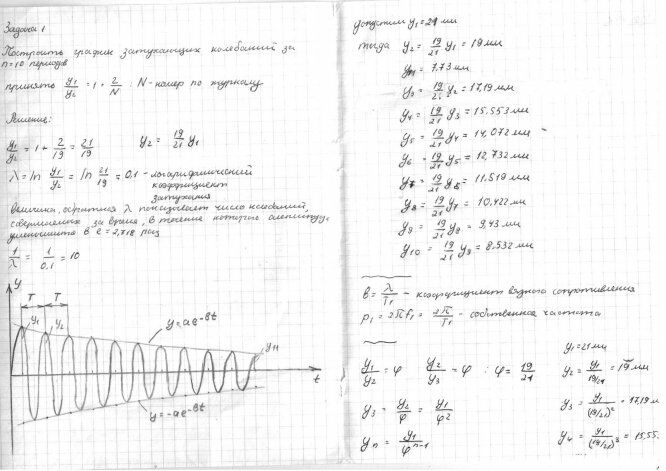 Задача 1
Построить график затухающих колебаний за
n=10 периодов
принять y₁/y₂ = 1 + 2/N ; N-номер по журналу
Решение:
y₁/y₂ = 1 + 2/19 = 21/19    y₂ = 19/21 y₁
λ = ln y₁/y₂ = ln 21/19 = 0,1 - логарифмический
коэффициент
затухания
величина, обратная λ показывает число колебаний,
совершаемых за время, в течение которого амплитуда
уменьшится в e = 2,718 раз
1/λ = 1/0,1 = 10
y
T T
y₁ y₂
y=ae^-bt
y₁₁
t
y=-ae^-bt
допустим y₁=21 мм
тогда y₂ = 19/21 y₁ = 19 мм
y₁₁ = 7,73 мм
y₃ = 19/21 y₂ = 17,19 мм
y₄ = 19/21 y₃ = 15,553 мм
y₅ = 19/21 y₄ = 14,072 мм
y₆ = 19/21 y₅ = 12,732 мм
y₇ = 19/21 y₆ = 11,519 мм
y₈ = 19/21 y₇ = 10,422 мм
y₉ = 19/21 y₈ = 9,43 мм
y₁₀ = 19/21 y₉ = 8,532 мм
b = λ/T₁ - коэффициент вязкого сопротивления
p₁ = 2πf₁ = 2π/T₁ - собственная частота
y₁=21мм
y₁/y₂ = φ    y₂/y₃ = φ ; φ = 19/21    y₂ = y₁/(19/21) = 19 мм
y₃ = y₂/φ = y₁/φ²    y₃ = y₁/(19/21)² = 17,19 м
yₙ = y₁/φⁿ⁻¹    y₄ = y₁/(19/21)³ = 15,55.